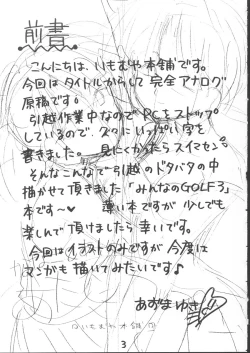 前書
こんにちは、いもむや本舗です。
今回はタイトルからして完全アナログ
原稿です。
引越作業中なのでPCをストップ
しているので、久々にいっぱい字を
書きました。見にくかったらスイマセン。
そんなこんなで引越のドタバタの中
描かせて頂きました「みんなのGOLF3」
本です〜♥ 薄い本ですが少しでも
楽しんで頂けましたら幸いです。
今回はイラストのみですが今度は
マンガも描いてみたいです♪
あずまゆき
3